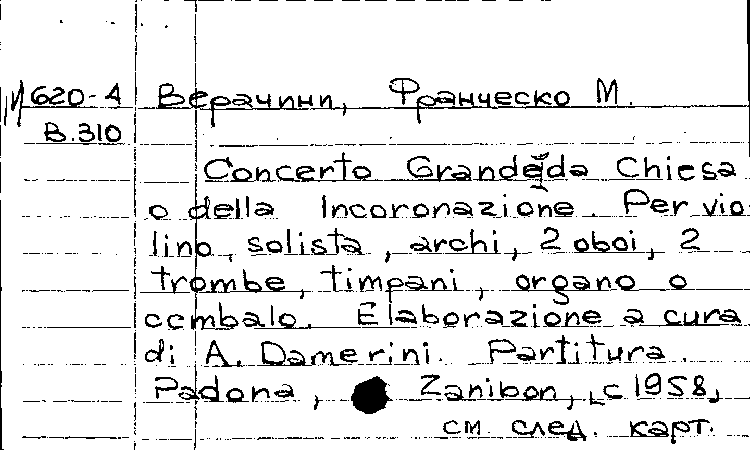 И620-4 Верачини, Франческо М.
В.310
Concerto Grande da Chiesa
o della Incoronazione. Per vio
lino, solista, archi, 2 oboi, 2
trombe, timpani, organo o
cembalo. Elaborazione a cura
di A. Damerini. Partitura.
Padona, Zanibon, [c 1958,
см. след. карт.